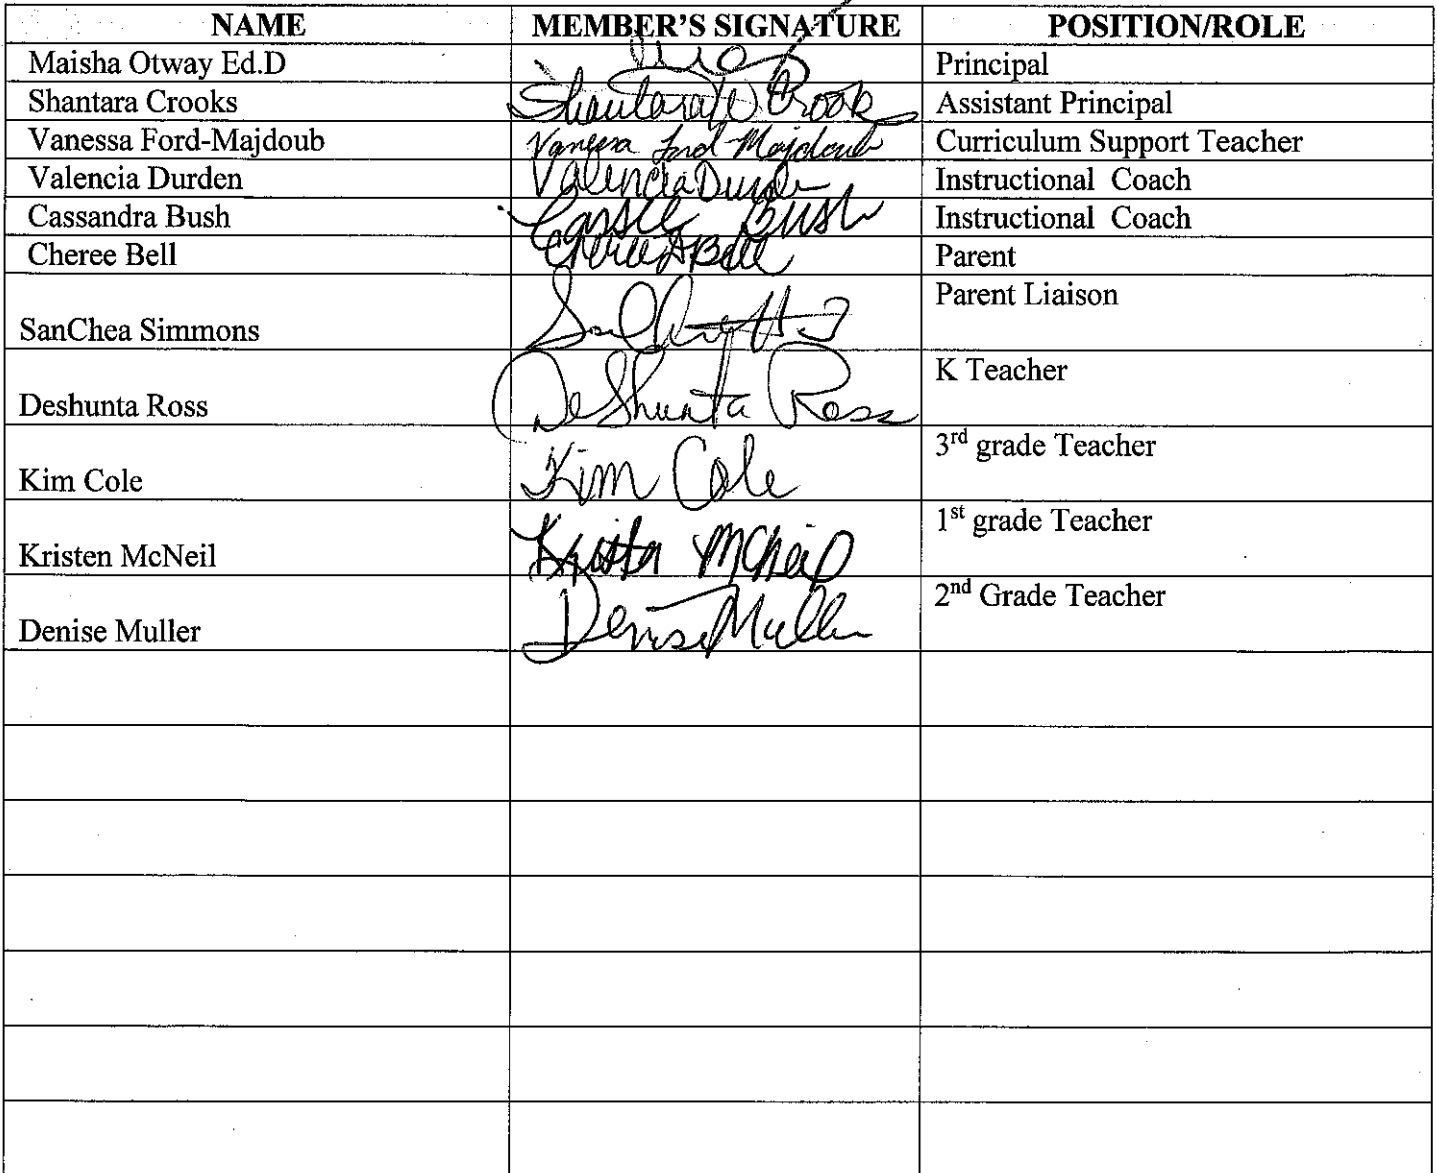 NAME MEMBER'S SIGNATURE POSITION/ROLE
Maisha Otway Ed.D Principal
Shantara Crooks Shantara W Crooks Assistant Principal
Vanessa Ford-Majdoub Vanessa Ford-Majdoub Curriculum Support Teacher
Valencia Durden Valencia Durden Instructional  Coach
Cassandra Bush Bush Instructional  Coach
Cheree Bell Cheree Bell Parent
SanChea Simmons Parent Liaison
Deshunta Ross DeShunta Ross K Teacher
Kim Cole Kim Cole 3rd grade Teacher
Kristen McNeil McNeil 1st grade Teacher
Denise Muller Denise Muller 2nd Grade Teacher